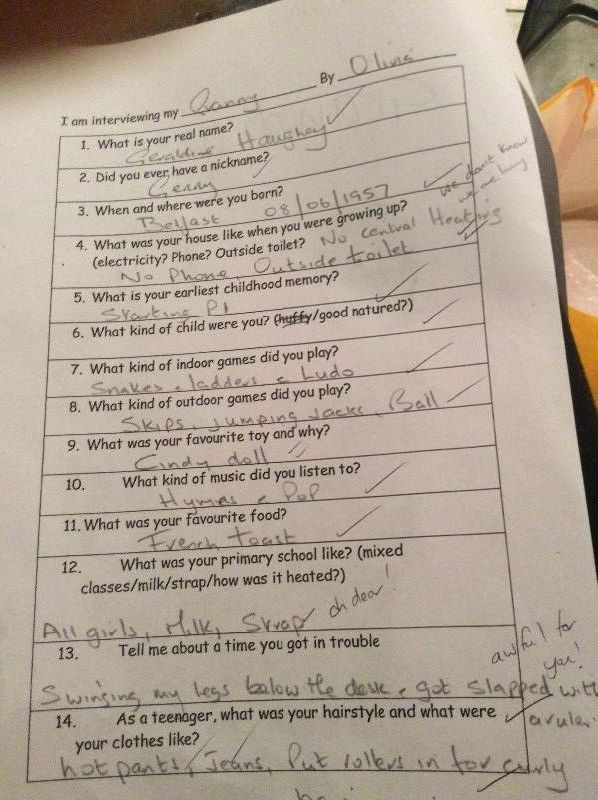 I am interviewing my Granny By Olivia
1. What is your real name?
Geraldine Haughey
2. Did you ever have a nickname?
Gerry
3. When and where were you born?
Belfast 08/06/1957
4. What was your house like when you were growing up?
(electricity? Phone? Outside toilet? No central Heating
No Phone, Outside toilet
we don't know
we are living
5. What is your earliest childhood memory?
Starting P1
6. What kind of child were you? (huffy/good natured?)
7. What kind of indoor games did you play?
Snakes & ladders & Ludo
8. What kind of outdoor games did you play?
Skips, Jumping Jacks, Ball
9. What was your favourite toy and why?
Cindy doll
10. What kind of music did you listen to?
Hymns & Pop
11. What was your favourite food?
French toast
12. What was your primary school like? (mixed
classes/milk/strap/how was it heated?)
All girls, Milk, Strap oh dear!
13. Tell me about a time you got in trouble
awful for
you!
Swinging my legs below the desk & got slapped with
a ruler.
14. As a teenager, what was your hairstyle and what were
your clothes like?
hot pants, Jeans, Put rollers in for curly